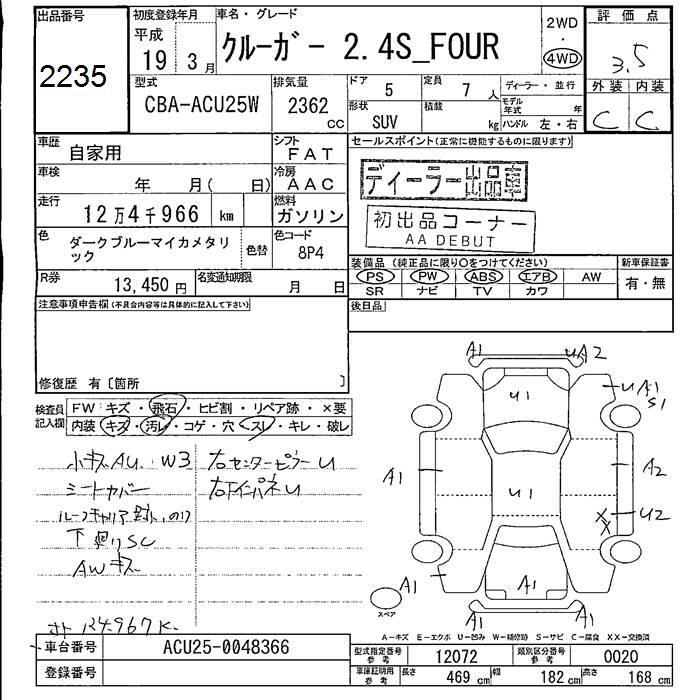 出品番号
2235
初度登録年月
平成
19年 3月
車名・グレード
クルーガー 2.4S_FOUR
2WD
・
4WD
評価点
3.5
外装 内装
C C
型式
CBA-ACU25W
排気量
2362 cc
ドア 5
定員 7 人
ディーラー・並行
形状 SUV
積載 kg
モデル年式 年
ハンドル 左・右
車歴 自家用
シフト FAT
車検 年 月( 日)
冷房 AAC
走行 12万4千966 km
燃料 ガソリン
色 ダークブルーマイカメタリック
色替
色コード 8P4
R券 13,450円
名変通知期限 月 日
セールスポイント(正常に機能するものに限ります)
ディーラー出品車
初出品コーナー
AA DEBUT
装備品(純正品に限り○をつけてください)
新車保証書
PS PW ABS エアB AW
SR ナビ TV カワ
有・無
後日品
注意事項申告欄(不具合内容等は具体的に記入して下さい)
修復歴 有〔箇所 〕
検査員記入欄
FW キズ・飛石・ヒビ割・リペア跡・×要
内装 キズ・汚レ・コゲ・穴・スレ・キレ・破レ
小キズAU. W3
シートカバー
ルーフキャリア跡、のり
下廻りSC
AWキズ
右センターピラーU
右下インパネU
124967K
A1 UA2
U1
UA1
S1
A1
A2
U1
U2
XX
A1
A1
A1 A1
スペア
A-キズ E-エクボ U-凹み W-補修跡 S-サビ C-腐食 XX-交換済
車台番号 ACU25-0048366
登録番号
型式指定番号 参考 12072
類別区分番号 参考 0020
車庫証明用 参考
長さ 469 cm 幅 182 cm 高さ 168 cm